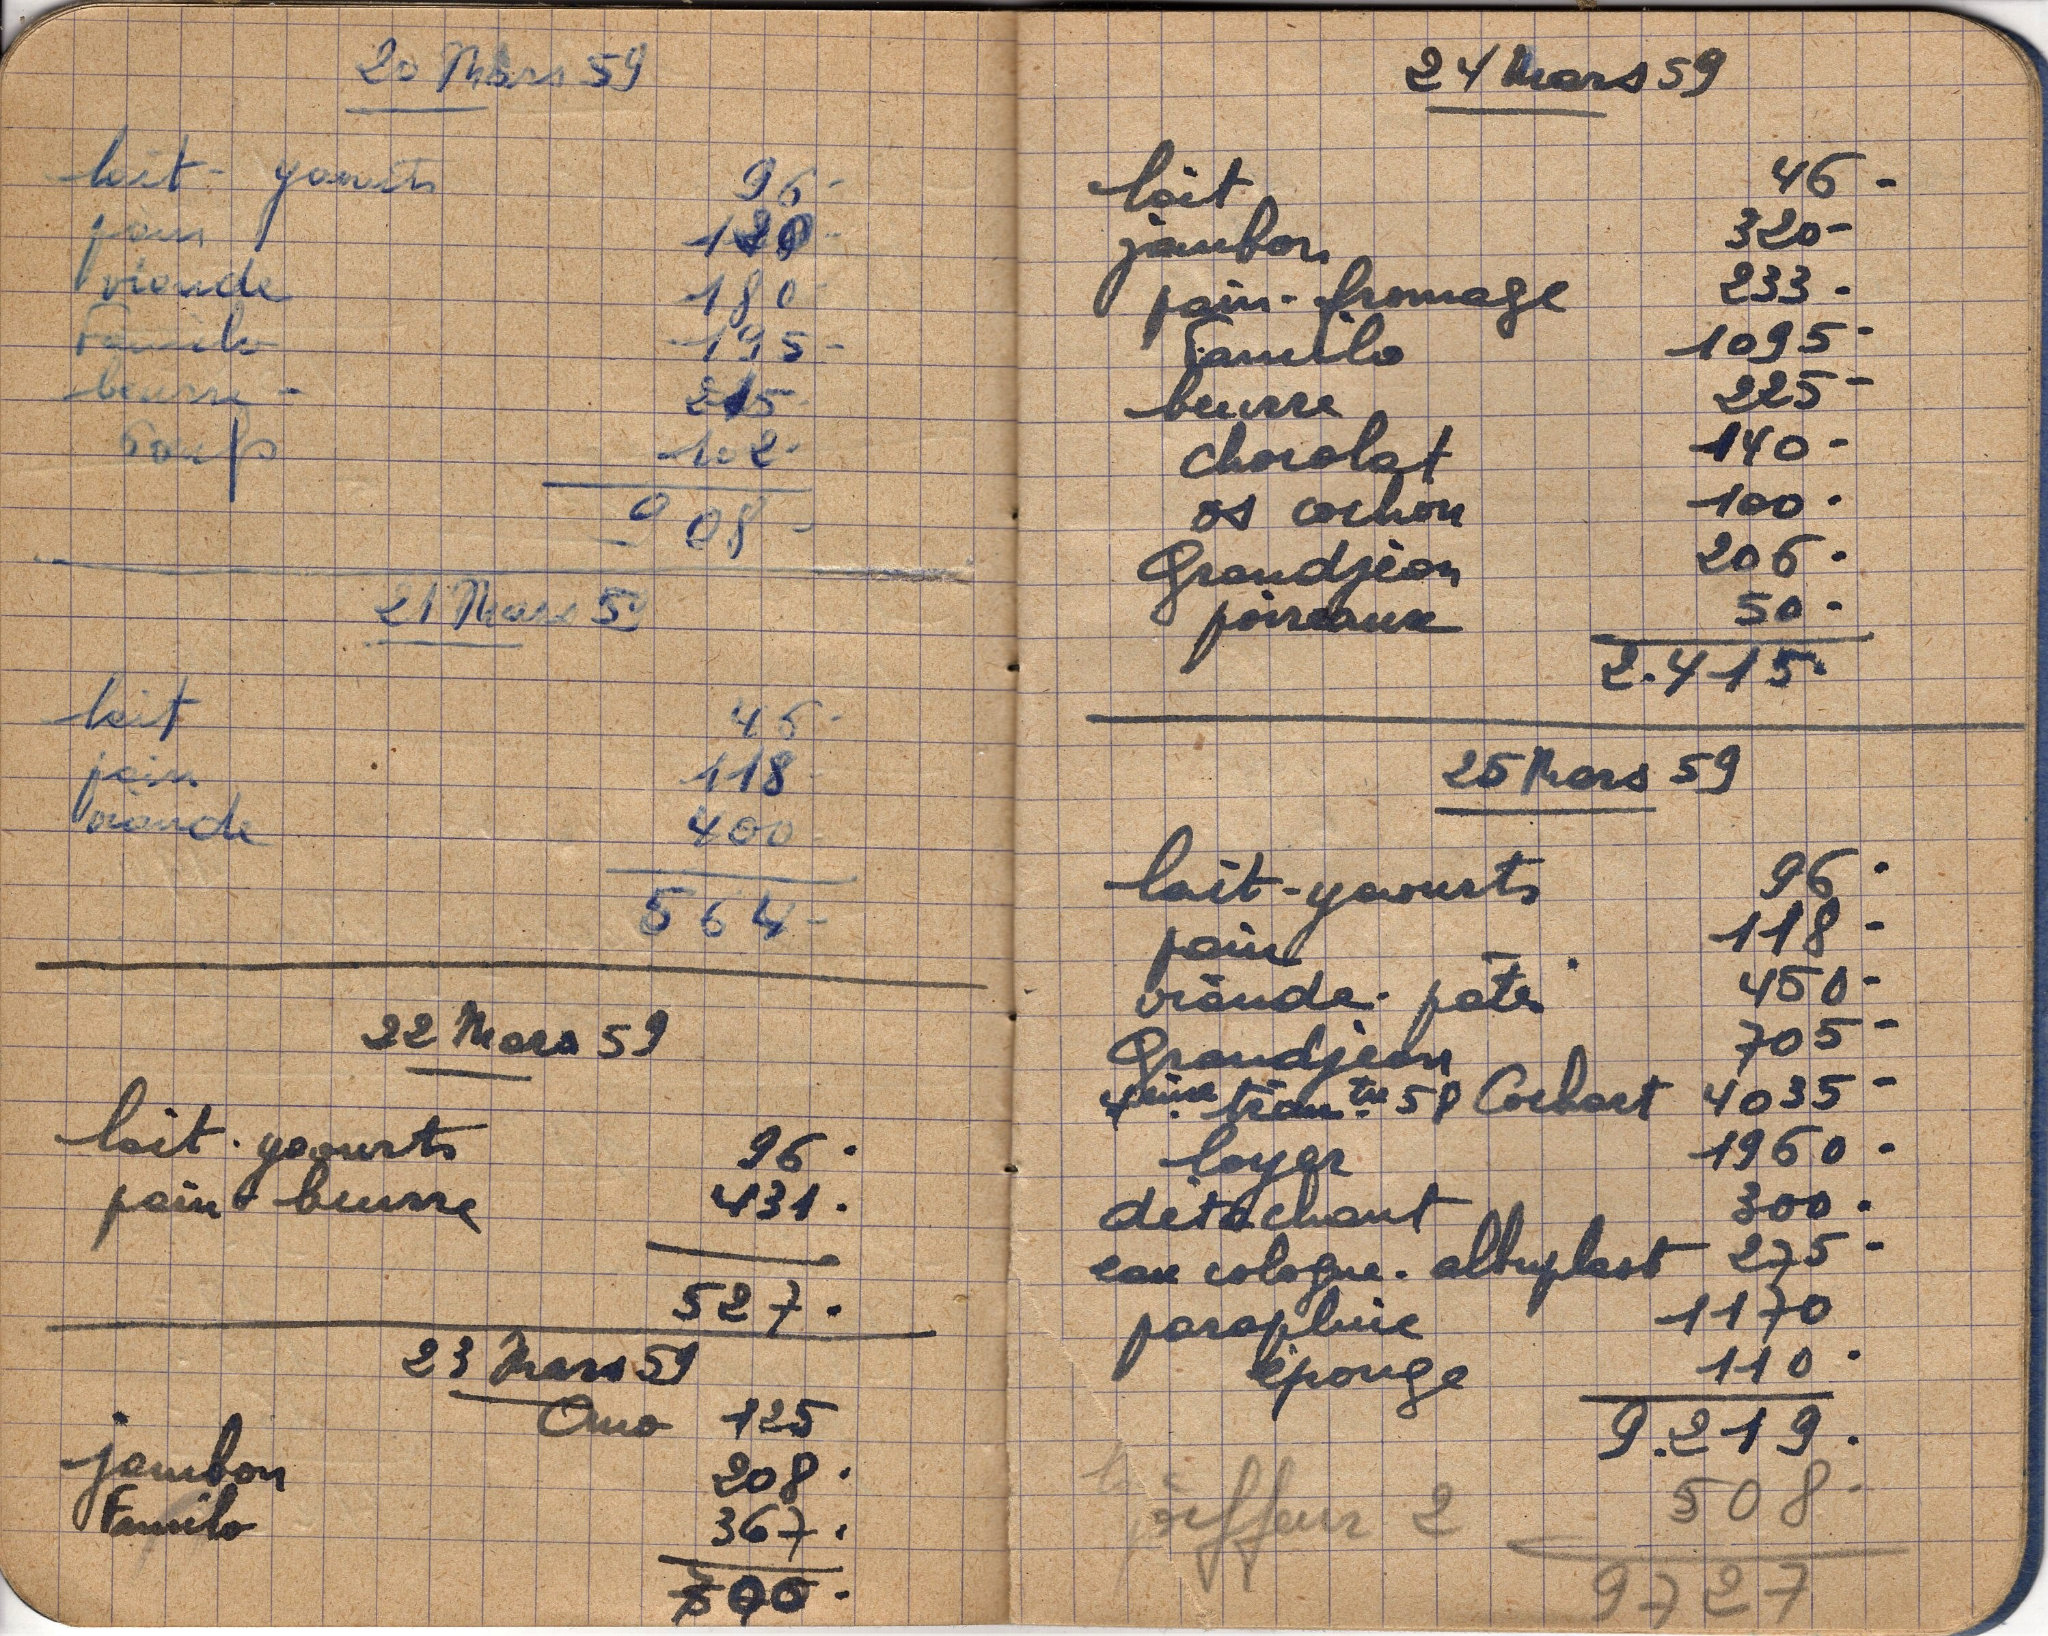 20 Mars 59
lait - yaourts 96-
pain 120-
viande 180-
Familo 195-
beurre - 215-
102-
908-
21 Mars 59
lait 46-
pain 118-
viande 400-
564-
22 Mars 59
lait - yaourts 96.
pain - beurre 431.
527.
23 Mars 59
Omo 125
jambon 208.
Familo 367.
700.
24 Mars 59
lait 46-
jambon 320-
pain - fromage 233.
Familo 1095-
beurre 225-
chocolat 140-
os cochon 100.
Grandjean 206.
poireaux 50-
2.415.
25 Mars 59
lait - yaourts 96.
pain 118-
viande - pâtés 450-
Grandjean 705-
4ème 58 Cochart 4035-
loyer 1960.
détachant 300.
eau cologne - albuplast 275-
parapluie 1170
éponge 110.
9.219.
coiffeur 2 508-
9727